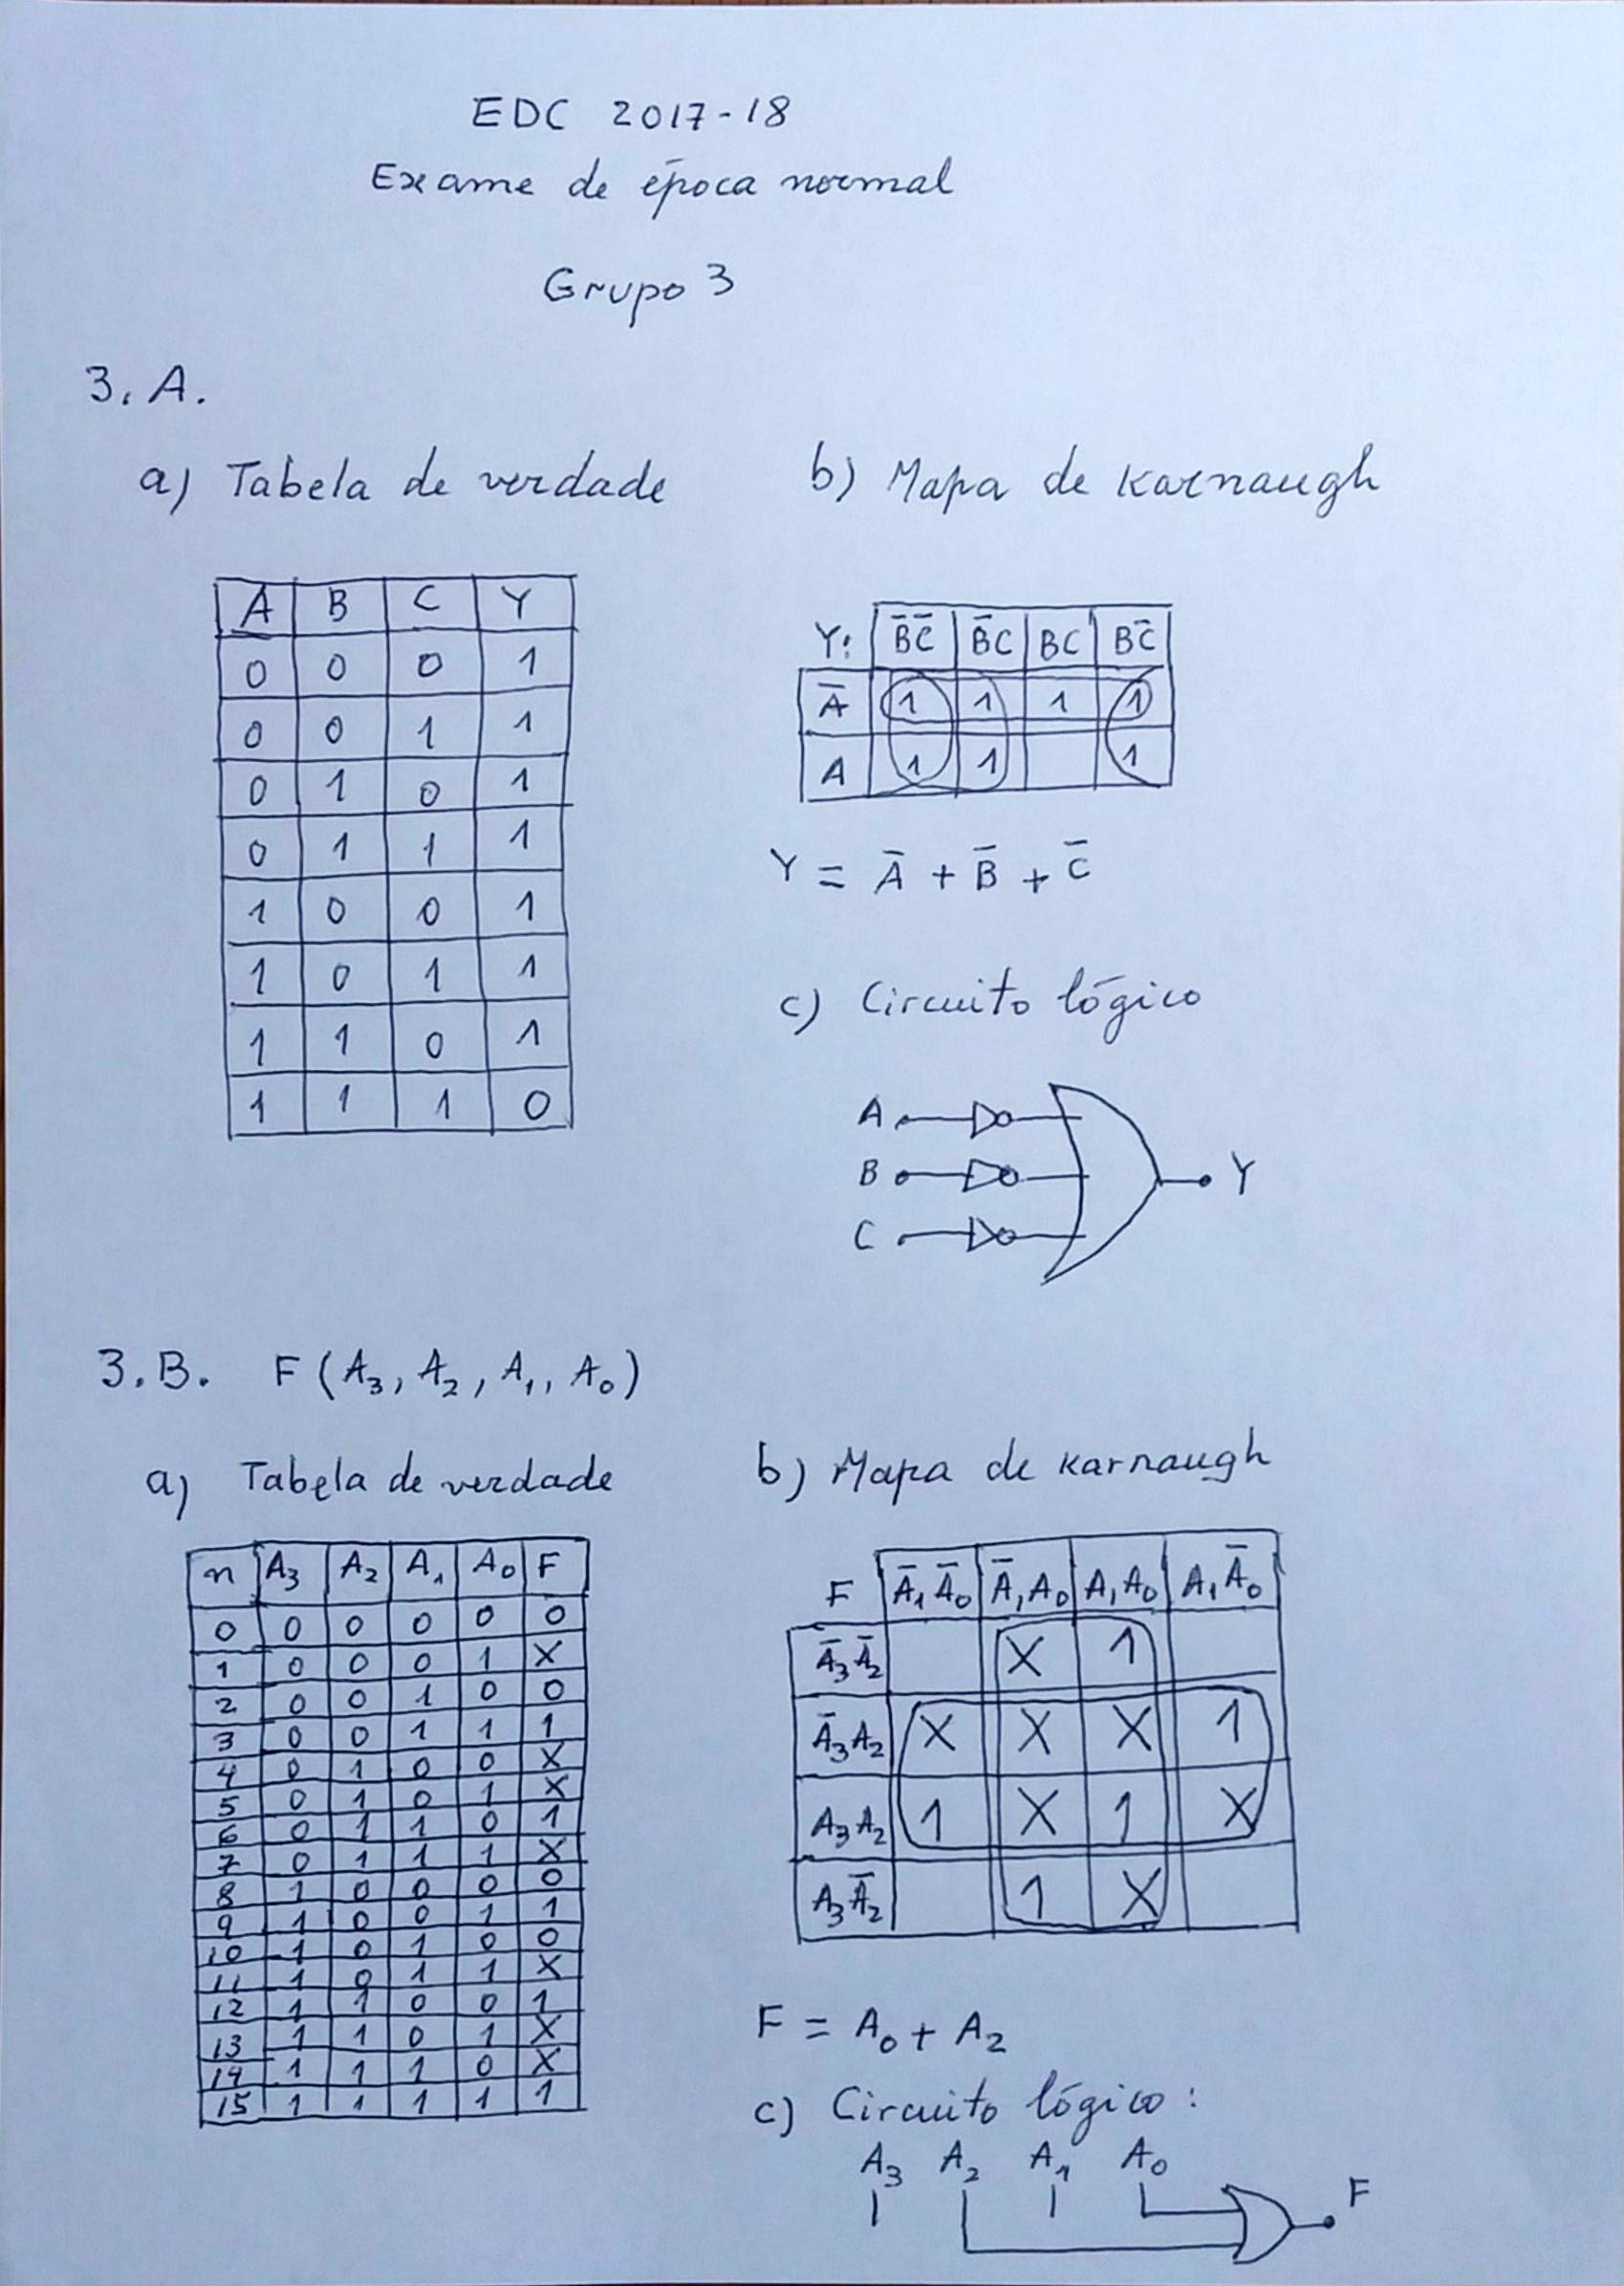 EDC 2017-18
Exame de época normal
Grupo 3
3. A.
a) Tabela de verdade
A B C Y
0 0 0 1
0 0 1 1
0 1 0 1
0 1 1 1
1 0 0 1
1 0 1 1
1 1 0 1
1 1 1 0
b) Mapa de Karnaugh
Y: B̅C̅ B̅C BC BC̅
A̅ 1 1 1 1
A 1 1 1
Y = A̅ + B̅ + C̅
c) Circuito lógico
A
B Y
C
3.B. F (A₃, A₂, A₁, A₀)
a) Tabela de verdade
n A₃ A₂ A₁ A₀ F
0 0 0 0 0 0
1 0 0 0 1 X
2 0 0 1 0 0
3 0 0 1 1 1
4 0 1 0 0 X
5 0 1 0 1 X
6 0 1 1 0 1
7 0 1 1 1 X
8 1 0 0 0 0
9 1 0 0 1 1
10 1 0 1 0 0
11 1 0 1 1 X
12 1 1 0 0 1
13 1 1 0 1 X
14 1 1 1 0 X
15 1 1 1 1 1
b) Mapa de Karnaugh
F A̅₁A̅₀ A̅₁A₀ A₁A₀ A₁A̅₀
A̅₃A̅₂ X 1
A̅₃A₂ X X X 1
A₃A₂ 1 X 1 X
A₃A̅₂ 1 X
F = A₀ + A₂
c) Circuito lógico :
A₃ A₂ A₁ A₀
F